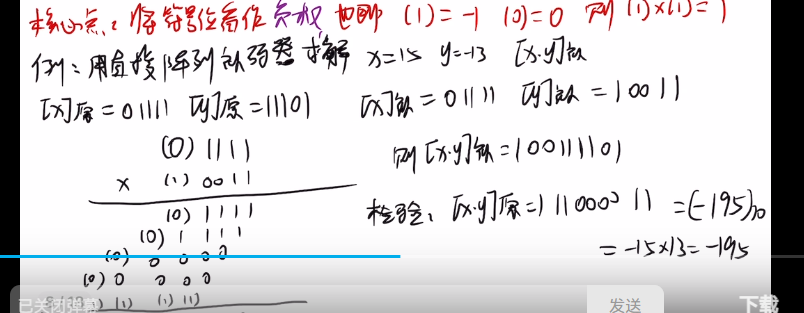 核心点：将符号位看作负权，也即 (1)=-1 (0)=0 则(1)×(1)=1
例：用直接阵列乘法器求解 x=15 y=-13 [x·y]补
[x]原=01111 [y]原=11101 [x]补=01111 [y]补=10011
(0) 1111
× (1) 0011
(0) 1111
(0) 1 1 1 1
(0) 0 0 0 0
(0) 0 0 0 0
(1) (1) (1)
则[x·y]补=100111101
检验：[x·y]原=111000011 =(-195)10
= -15×13=-195
已关闭弹幕
发送
下载